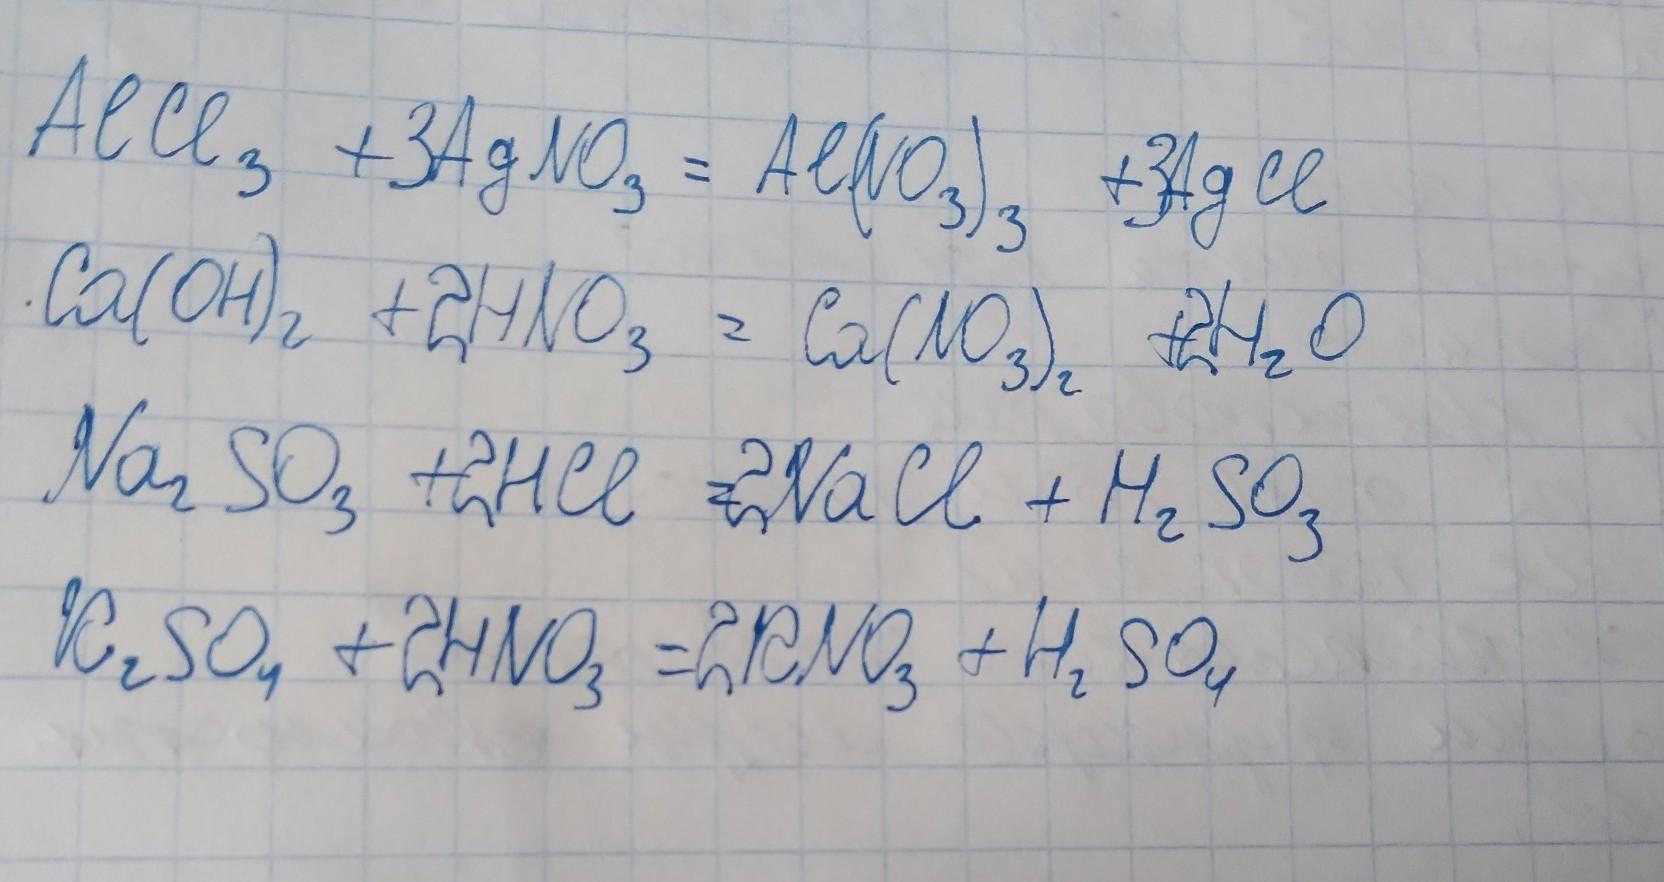 AlCl₃ +3AgNO₃ = Al(NO₃)₃ +3AgCl
Ca(OH)₂ +2HNO₃ = Ca(NO₃)₂ +2H₂O
Na₂SO₃ +2HCl =2NaCl + H₂SO₃
K₂SO₄ +2HNO₃ =2KNO₃ + H₂SO₄